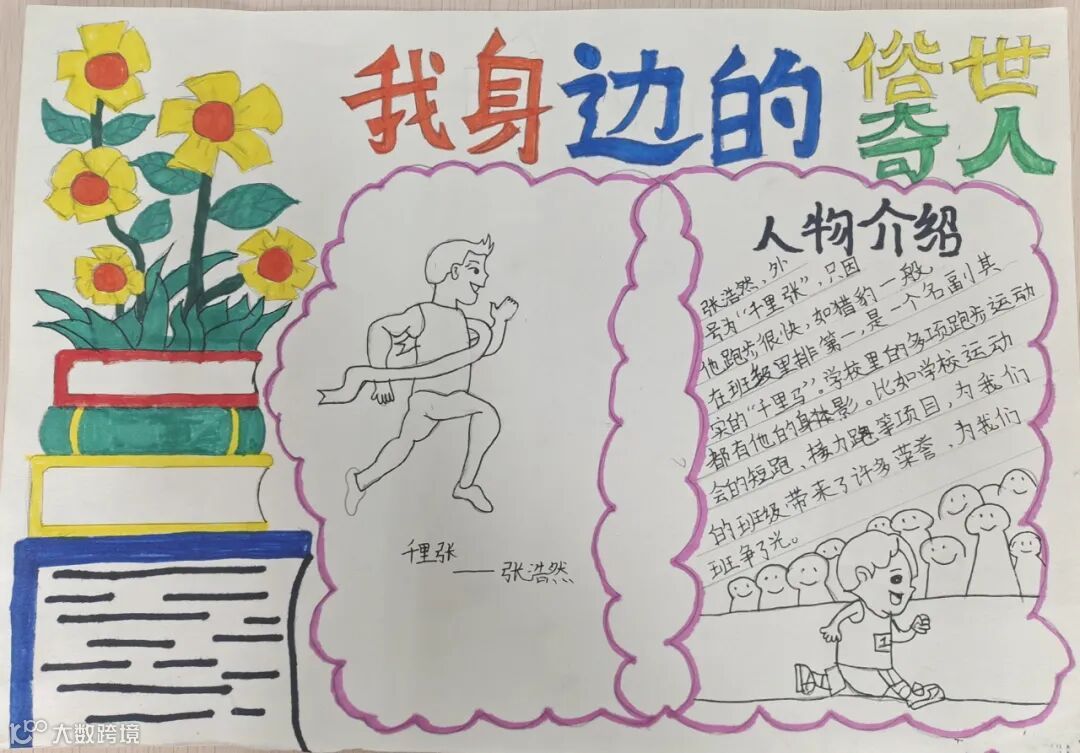 我身边的俗世
奇人
人物介绍
张浩然，外
号为“千里张”，只因
他跑步很快，如猎豹一般
在班级里排第一，是一个名副其
实的“千里马”。学校里的多项跑步运动
都有他的身体影。比如学校运动
会的短跑、接力跑等项目，为我们
的班级带来了许多荣誉，为我们
班争了光。
千里张
——张浩然
1
大数跨境